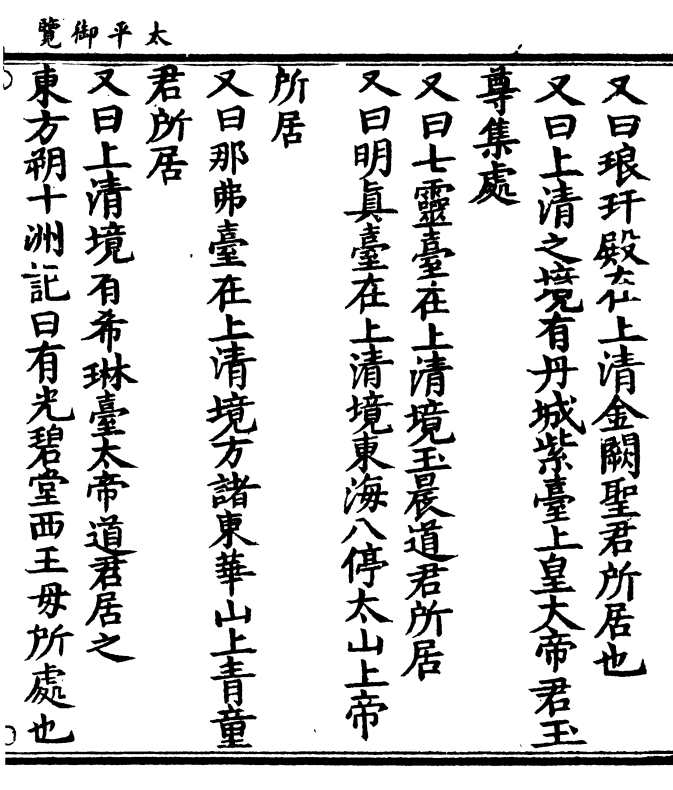 太平御覽
又曰琅玕殿在上清金闕聖君所居也
又曰上清之境有丹城紫臺上皇大帝君玉
尊集處
又曰七靈臺在上清境玉晨道君所居
又曰明真臺在上清境東海八停太山上帝
所居
又曰那弗臺在上清境方諸東華山上青童
君所居
又曰上清境有希琳臺太帝道君居之
東方朔十洲記曰有光碧堂西王母所處也